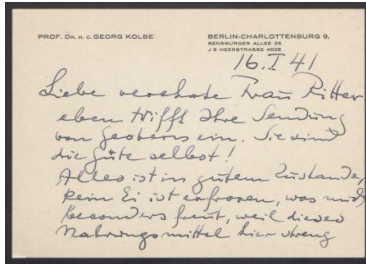 PROF. DR. H. C. GEORG KOLBE
BERLIN-CHARLOTTENBURG 9,
SENSBURGER ALLEE 25
J 9 HEERSTRASSE 4028
16. I 41
Liebe verehrte Frau Ritter
eben trifft Ihre Sendung
von gestern ein. Sie sind
die Güte selbst!
Alles ist in gutem Zustande,
kein Ei ist erfroren, was mich
besonders freut, weil dieses
Nahrungsmittel hier streng